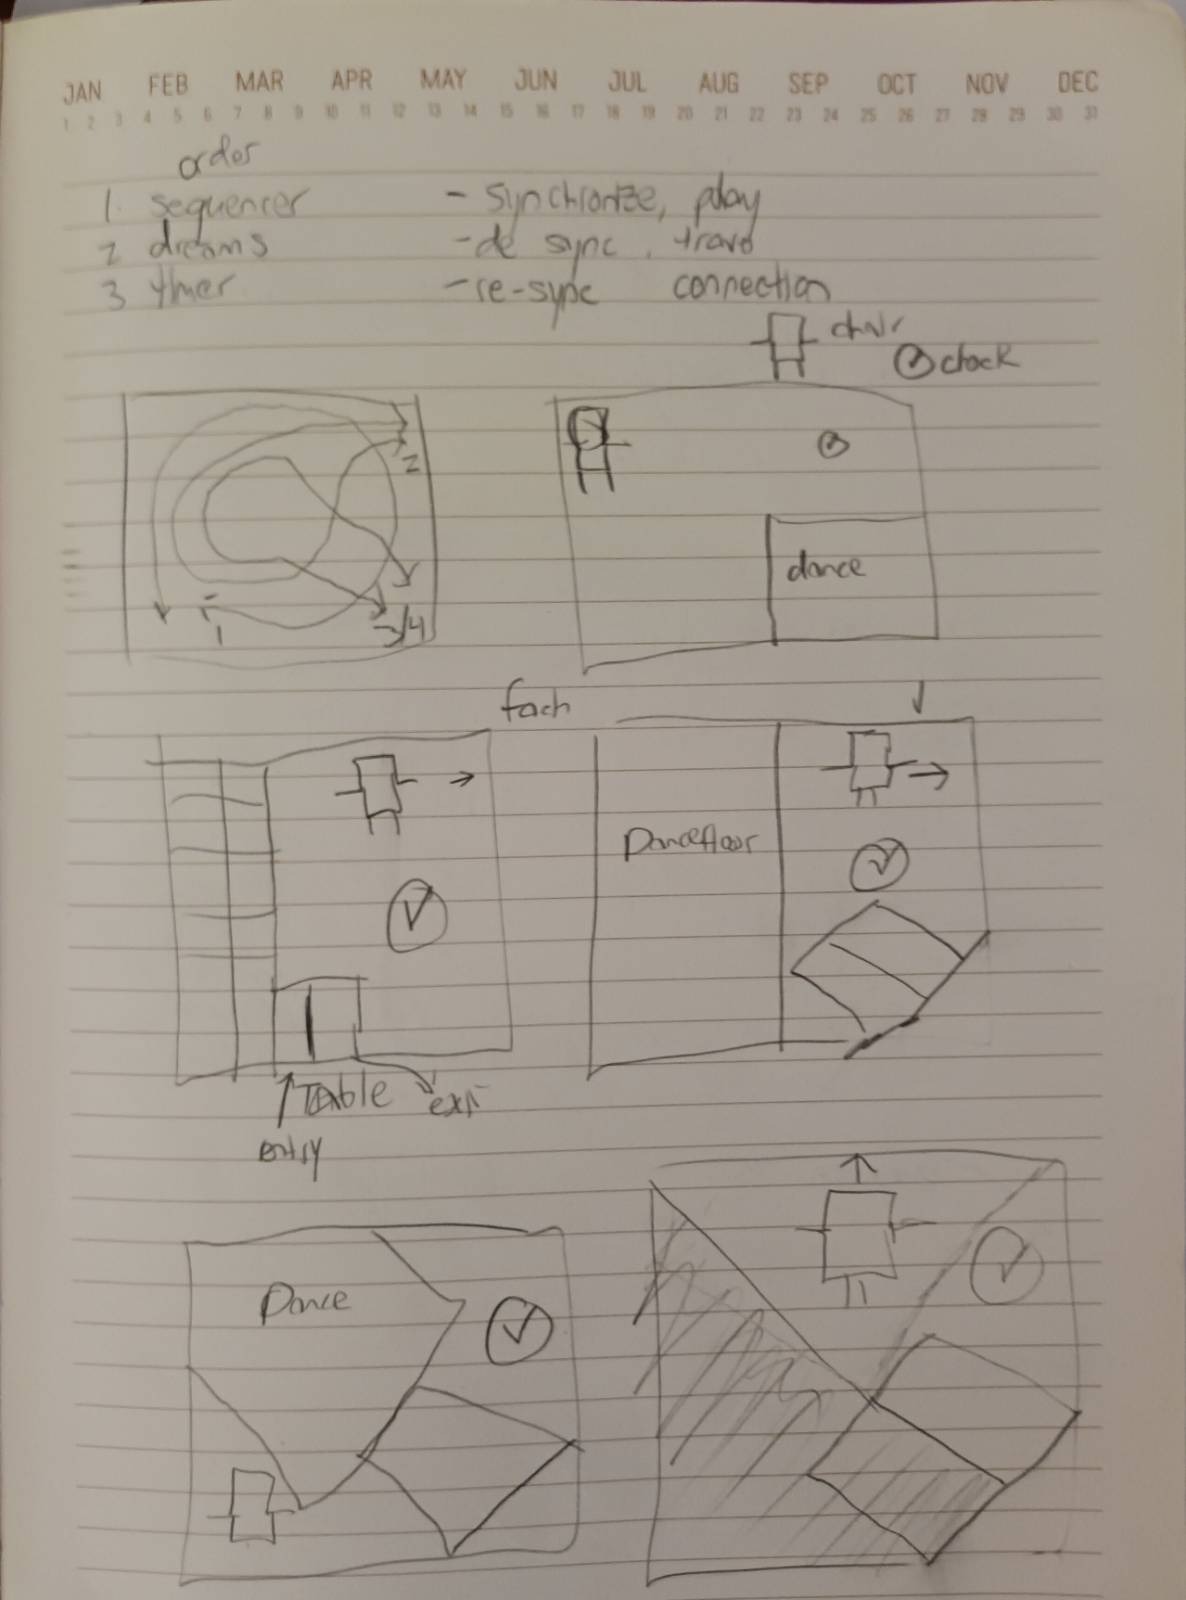 JAN FEB MAR APR MAY JUN JUL AUG SEP OCT NOV DEC
1 2 3 4 5 6 7 8 9 10 11 12 13 14 15 16 17 18 19 20 21 22 23 24 25 26 27 28 29 30 31
order
1. sequencer - synchronize, play
2 dreams - de sync, travel
3 timer - re-sync connection
chair
clock
2
1
3/4
dance
Dancefloor
Table
exit
entry
Dance